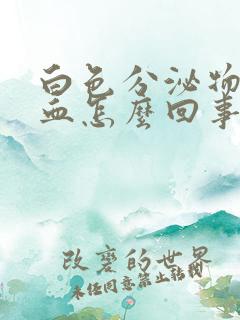 白色分泌物
血怎麼回事
改变的世界
未经同意禁止转载